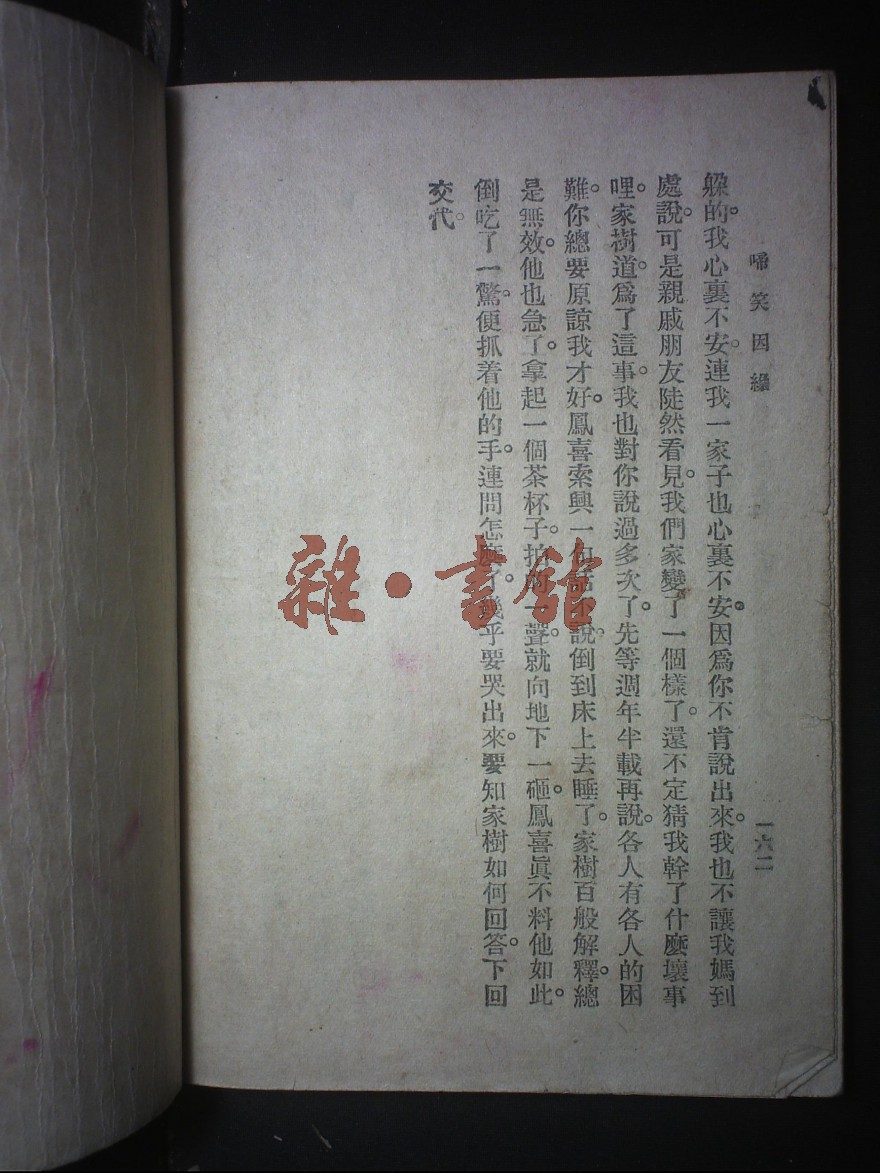 啼笑因緣
一六二
躱的。我心裏不安。連我一家子也心裏不安。因爲你不肯說出來。我也不讓我媽到
處說。可是親戚朋友陡然看見。我們家變了一個樣了。還不定猜我幹了什麽壞事
哩。家樹道。爲了這事。我也對你說過多次了。先等週年半載再說。各人有各人的困
難。你總要原諒我才好。鳳喜索興一句話不說。倒到床上去睡了。家樹百般解釋。總
是無效。他也急了。拿起一個茶杯子。拍的一聲。就向地下一砸。鳳喜眞不料他如此。
倒吃了一驚。便抓着他的手。連問怎麽了。幾乎要哭出來。要知家樹如何回答。下回
交代。
雜·書館